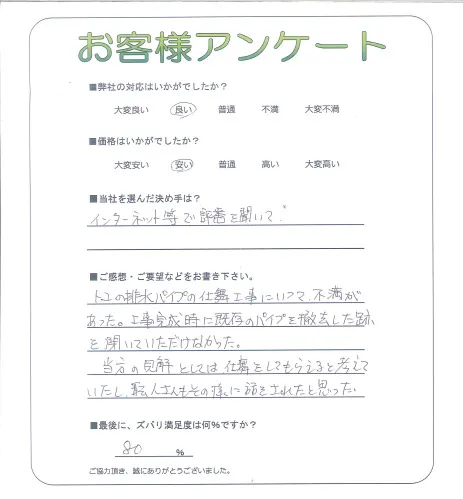 お客様アンケート
■弊社の対応はいかがでしたか?
大変良い 良い 普通 不満 大変不満
■価格はいかがでしたか?
大変安い 安い 普通 高い 大変高い
■当社を選んだ決め手は?
インターネット等で評番を聞いて。
■ご感想・ご要望などをお書き下さい。
トユの排水パイプの仕舞工事について、不満が
あった。工事完成時に既存のパイプを撤去した跡
を聞いていただけなかった。
当方の見解としては仕舞をしてもらえると考えて
いたし、職人さんもその様に話をされたと思った。
■最後に、ズバリ満足度は何%ですか?
80 %
ご協力頂き、誠にありがとうございました。